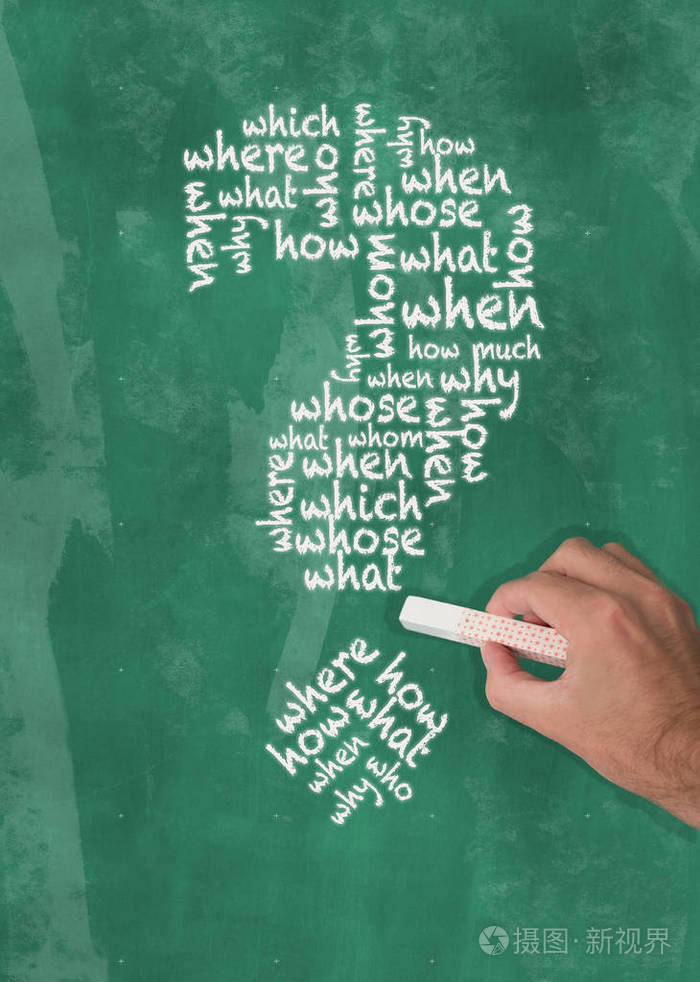 which
where
who
where
why
how
when
when
what
whose
why
how
whom
what
how
when
how much
why
when
why
whose
when
how
what
whom
where
when
which
whose
what
where
how
how
what
when
who
why
摄图·新视界